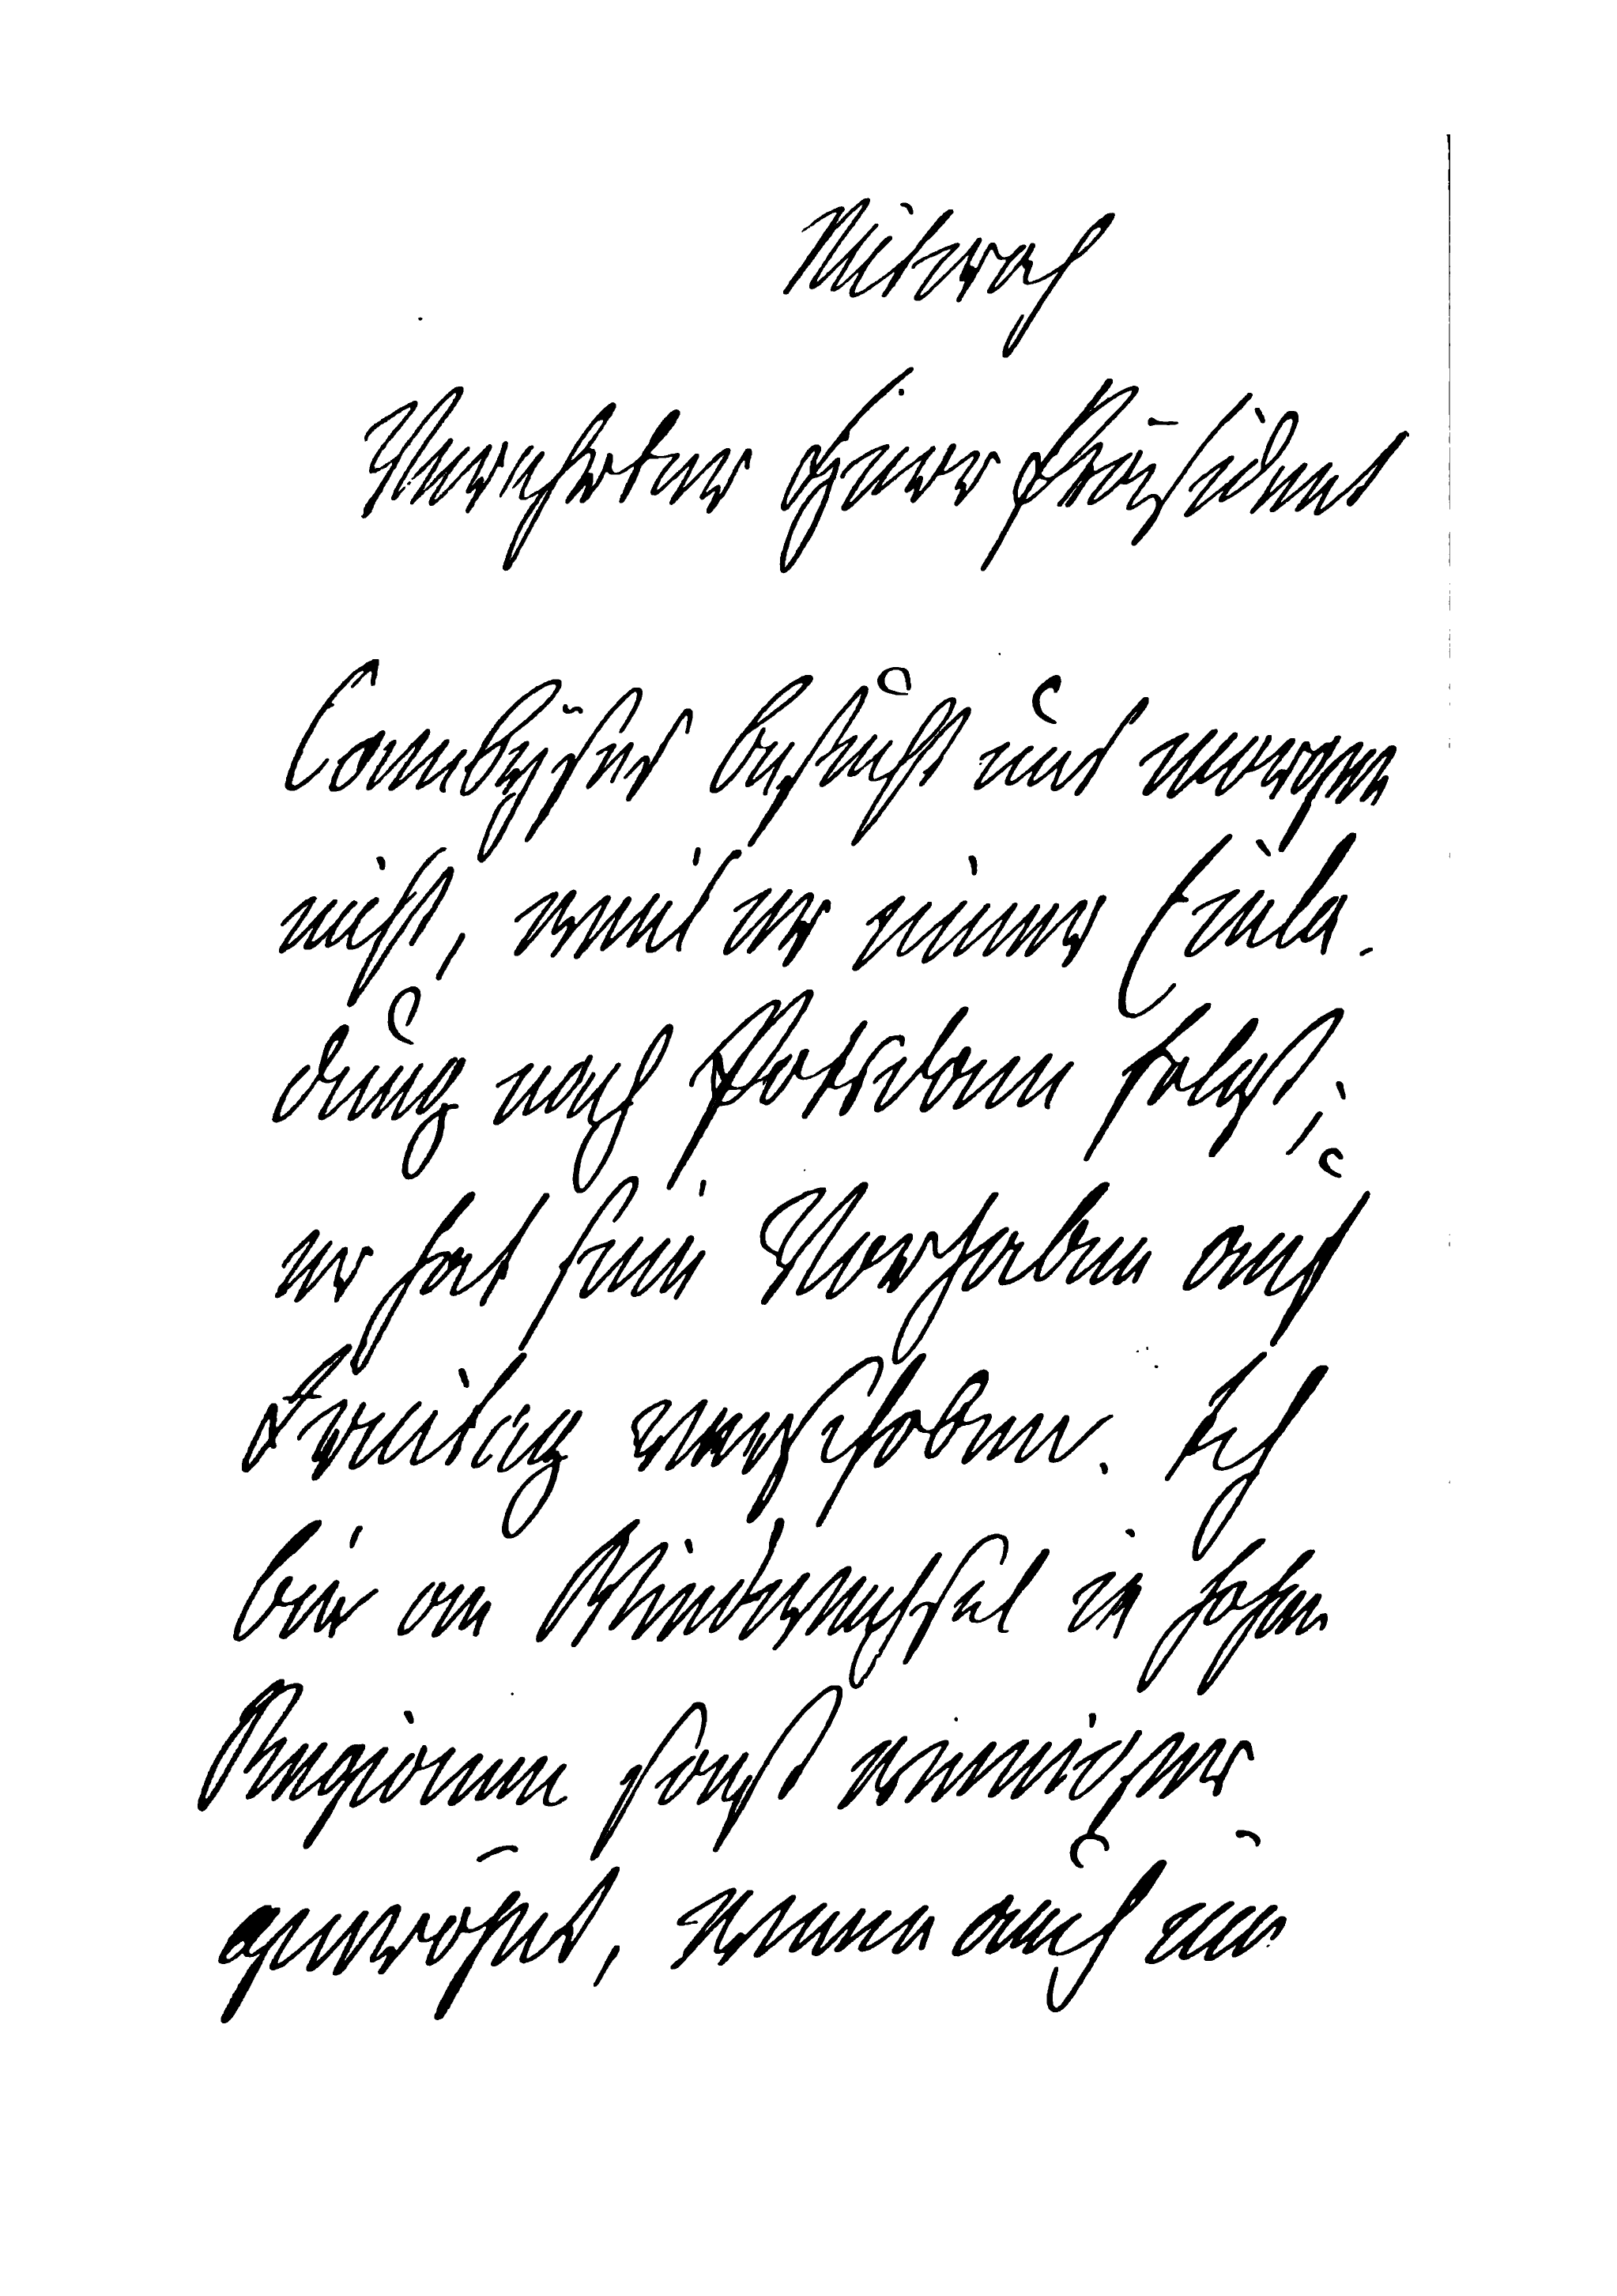 Mitwoch
Verehrter Herr Präsident
Cambyses besucht uns morgen
nicht, weil er einer Einla-
dung nach Potsdam folgt;
er hat sein Vorhaben auf
Freitag verschoben. Ich
bin an Windwechsel in hohen
Regionen sonst weniger
gewöhnt, wenn auch nur